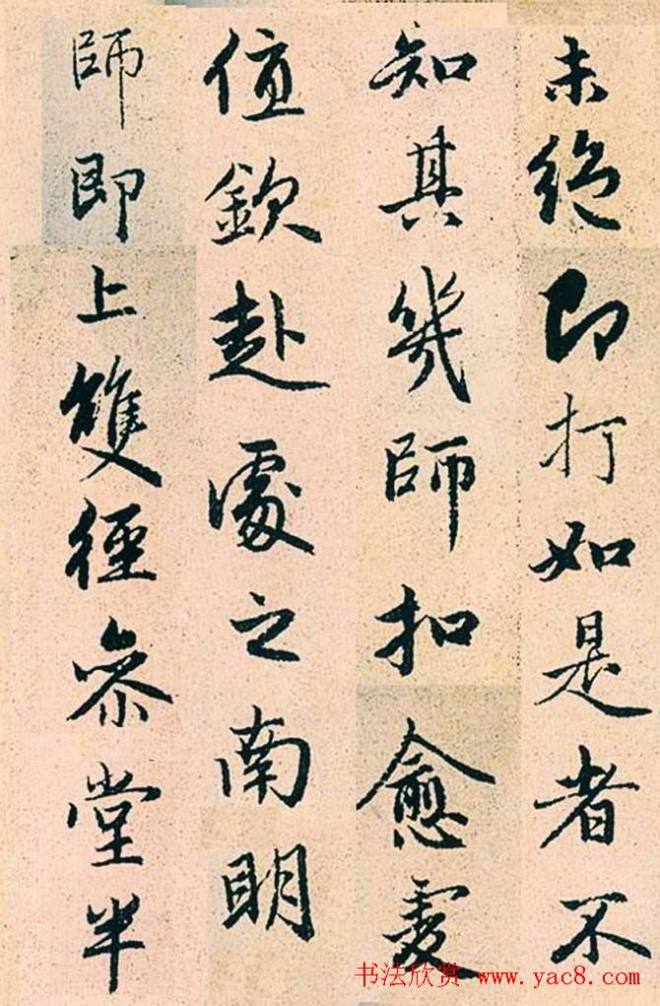 未絕即打如是者不
知其幾師扣愈虔
值欽赴處之南明
師即上雙徑叅堂半
书法欣赏 www.yac8.com